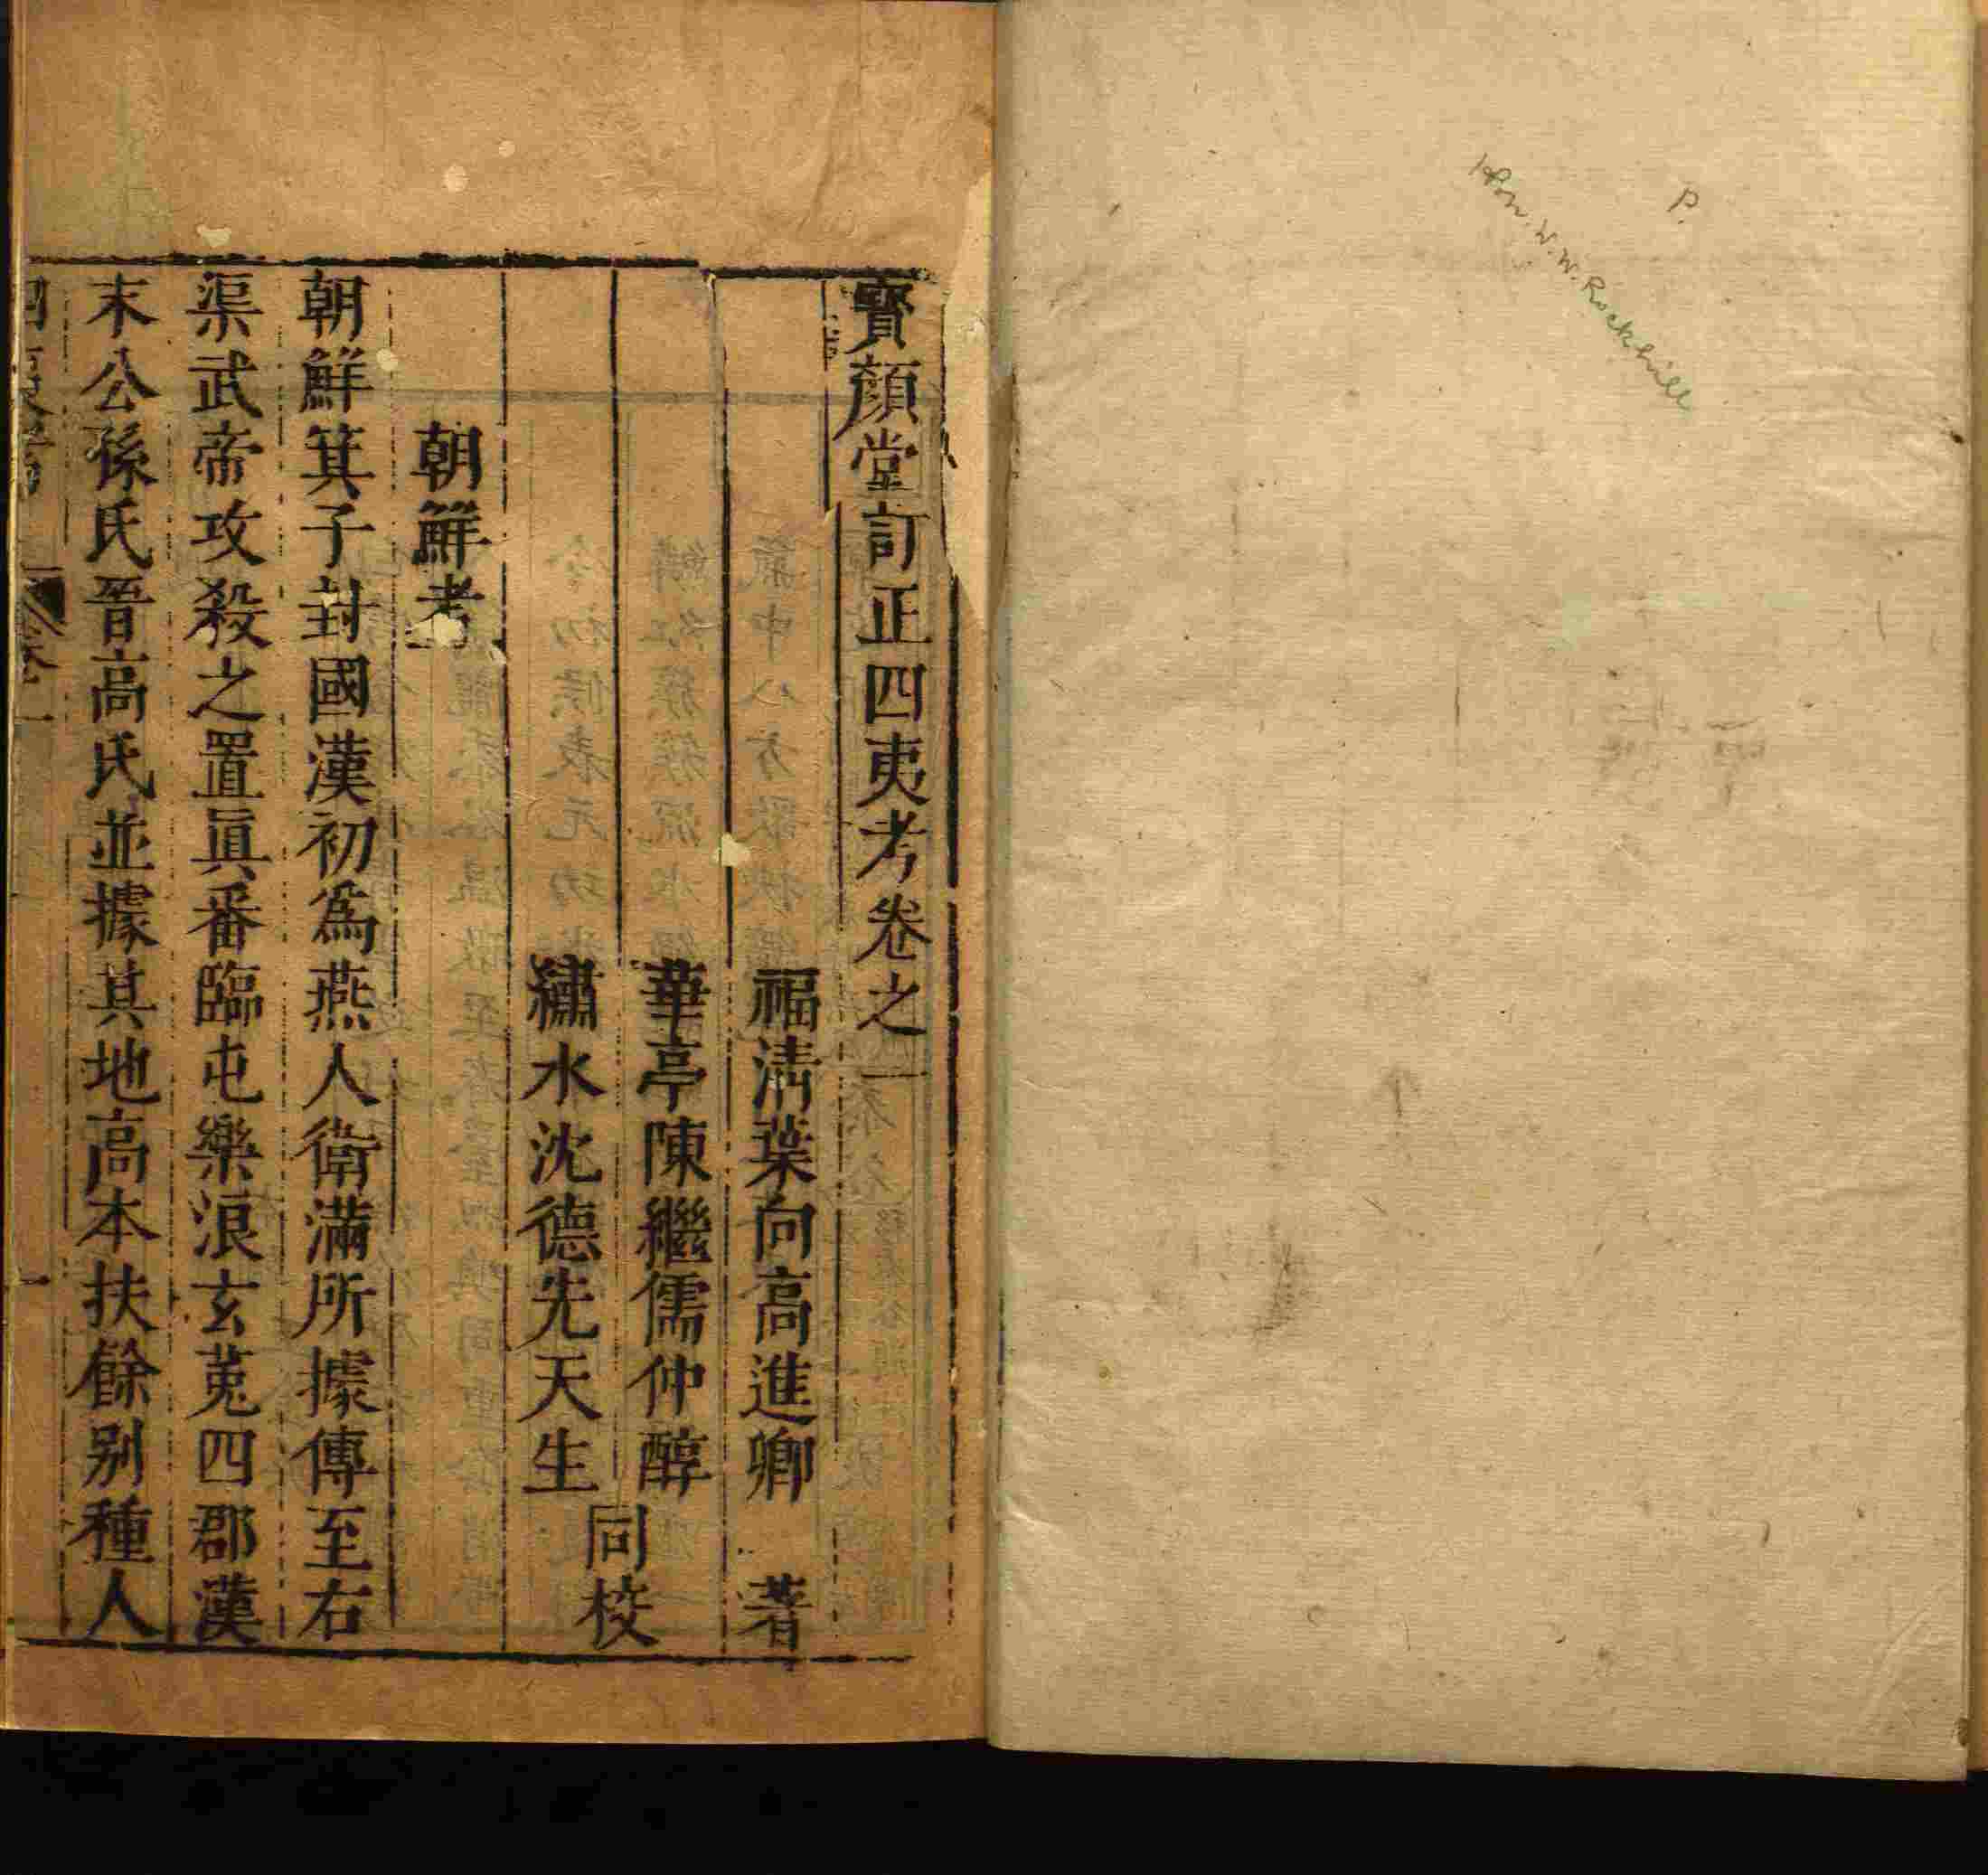 P.
Hon. W. W. Rockhill
寶顏堂訂正四夷考卷之一
福清葉向高進卿 著
華亭陳繼儒仲醇
繡水沈德先天生
同校
朝鮮考
朝鮮箕子封國漢初爲燕人衛滿所據傳至右
渠武帝攻殺之置眞番臨屯樂浪玄菟四郡漢
末公孫氏晉高氏並據其地高本扶餘别種人